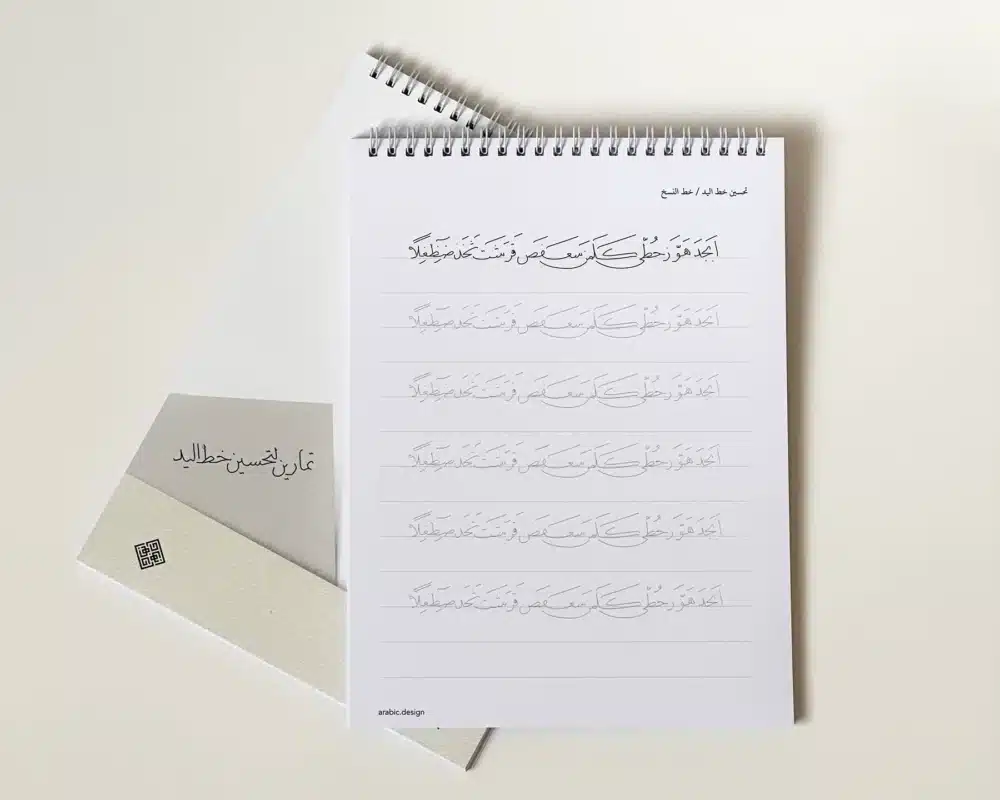 تحسين خط اليد / خط النسخ
اَبجَد هَوَّز حُطّي كَلَمَن سَعفَص قَرَشَت ثَخَذ ضَظَغِلاً
اَبجَد هَوَّز حُطّي كَلَمَن سَعفَص قَرَشَت ثَخَذ ضَظَغِلاً
اَبجَد هَوَّز حُطّي كَلَمَن سَعفَص قَرَشَت ثَخَذ ضَظَغِلاً
اَبجَد هَوَّز حُطّي كَلَمَن سَعفَص قَرَشَت ثَخَذ ضَظَغِلاً
اَبجَد هَوَّز حُطّي كَلَمَن سَعفَص قَرَشَت ثَخَذ ضَظَغِلاً
اَبجَد هَوَّز حُطّي كَلَمَن سَعفَص قَرَشَت ثَخَذ ضَظَغِلاً
arabic.design
تمارين لتحسين خط اليد